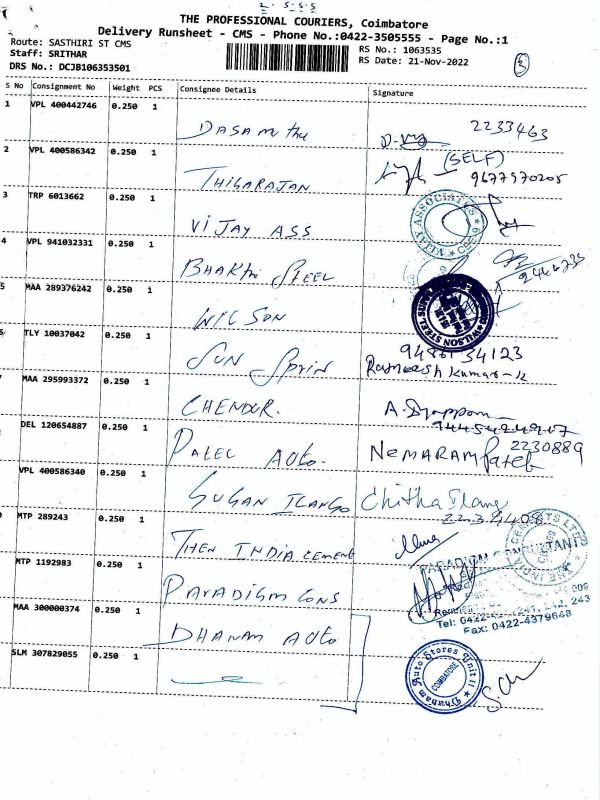 THE PROFESSIONAL COURIERS, Coimbatore
Delivery Runsheet - CMS - Phone No.:0422-3505555 - Page No.:1
Route: SASTHIRI ST CMS
Staff: SRITHAR
DRS No.: DCJB106353501
RS No.: 1063535
RS Date: 21-Nov-2022
3
S No Consignment No Weight PCS Consignee Details Signature
1 VPL 400442746 0.250 1
DASAMthu 2233463
2 VPL 400586342 0.250 1
THIGARAJAN (SELF)
9677970205
3 TRP 6013662 0.250 1
VIJAY ASS VIJAY ASSOCIATES
4 VPL 941032331 0.250 1
BHAKTHI STEEL 2444235
5 MAA 289376242 0.250 1
WILSON WILSON STEEL
TLY 10037042 0.250 1
SUN SPrin 94861 34123
Rajneesh Kumar-k
MAA 295993372 0.250 1
CHENDUR. A.
DEL 120654887 0.250 1
PATEL AUTO. NEMARAM Patel 2230889
VPL 400586340 0.250 1
SUGAN ILANGO Chitha Ilang
MTP 289243 0.250 1
THEN INDIA CEMENT
MTP 1192983 0.250 1
PARADIGM CONS PARADIGM CONSULTANT
Tel: 0422-
Fax: 0422-4379648
MAA 300000374 0.250 1
DHANAM AUTO Dhanam Auto Stores Unit II
COIMBATORE
SLM 307829055 0.250 1